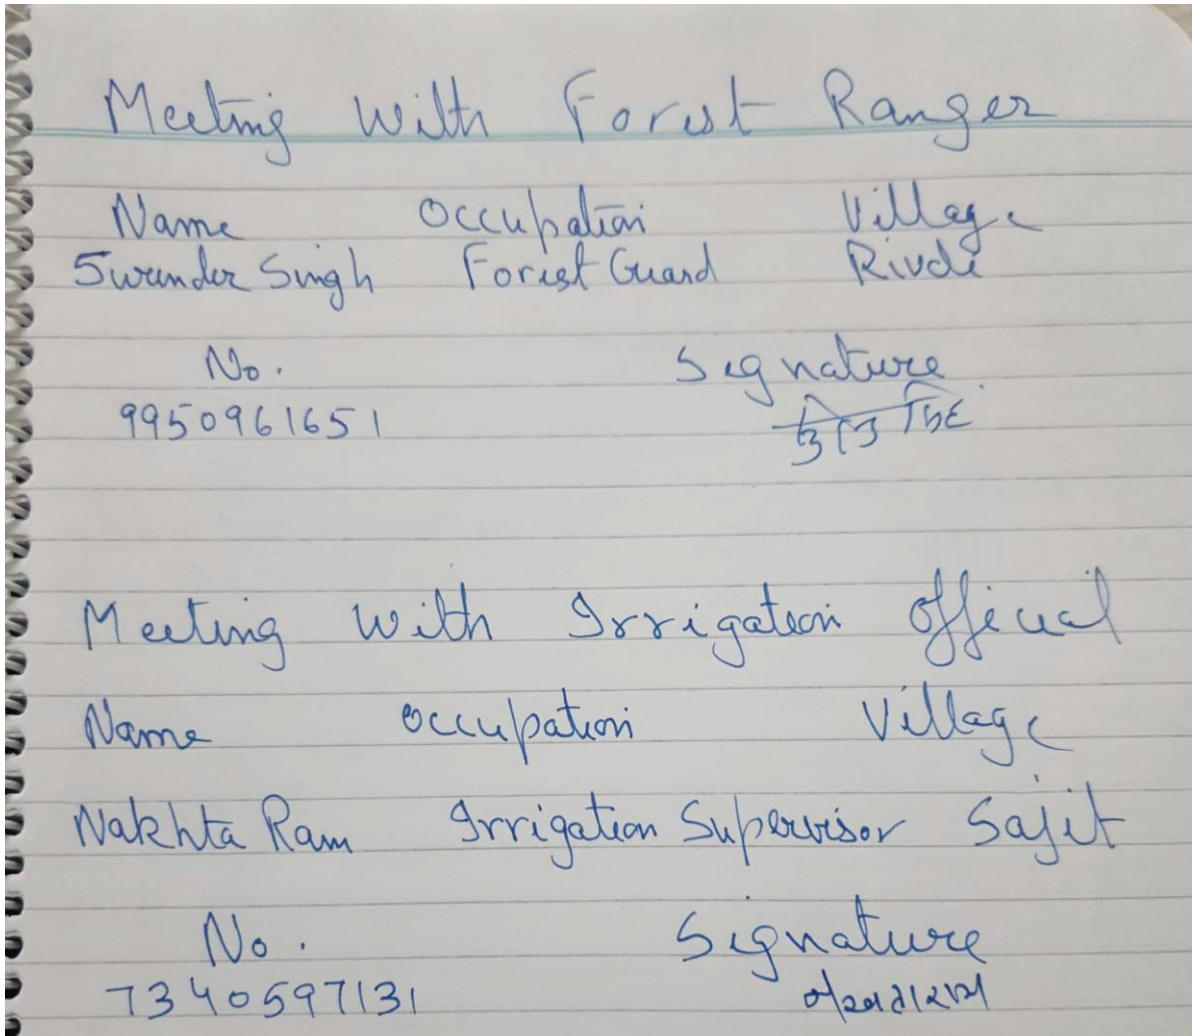 Meeting With Forest Ranger
Name Occupation Village
Surender Singh Forest Guard Rivdi
No. Signature
9950961651
Meeting With Irrigation Official
Name Occupation Village
Nakhta Ram Irrigation Supervisor Sajit
No. Signature
7340597131